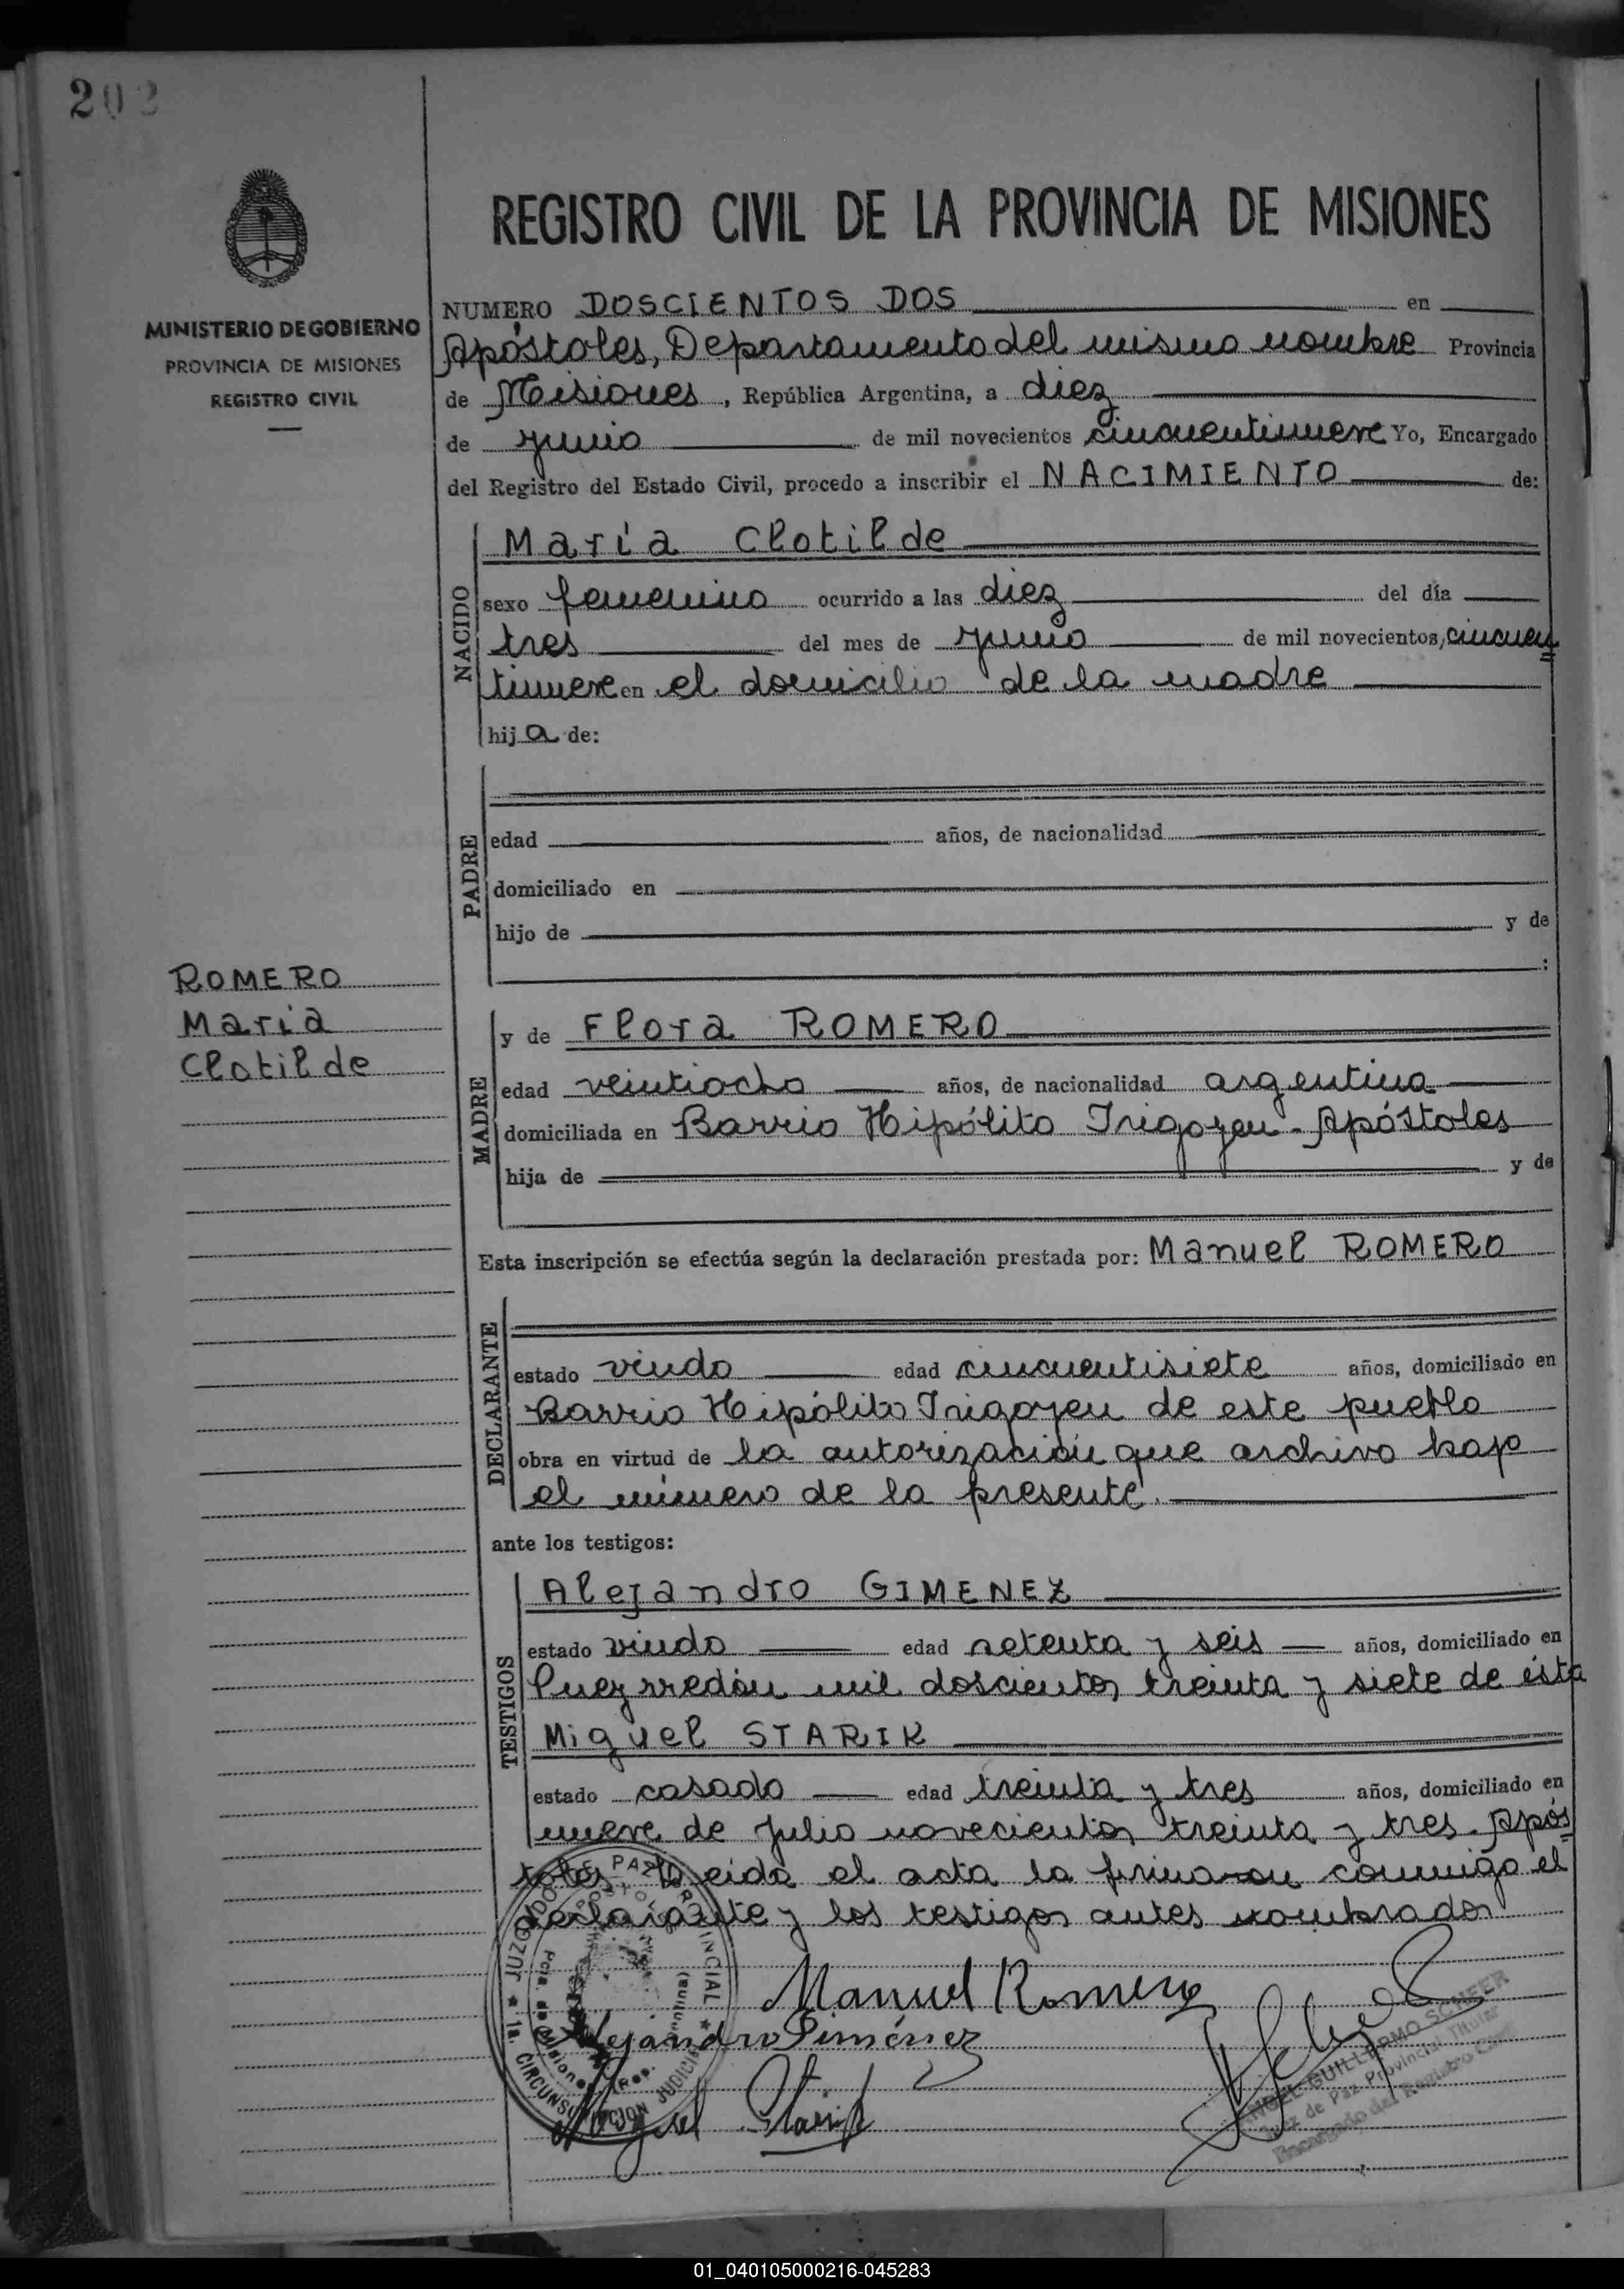 202
MINISTERIO DE GOBIERNO
PROVINCIA DE MISIONES
REGISTRO CIVIL
REGISTRO CIVIL DE LA PROVINCIA DE MISIONES
NUMERO DOSCIENTOS DOS en
Apóstoles, Departamento del mismo nombre Provincia
de Misiones, República Argentina, a diez
de junio de mil novecientos cincuentinueve Yo, Encargado
del Registro del Estado Civil, procedo a inscribir el NACIMIENTO de:
NACIDO
María Clotilde
sexo femenino ocurrido a las diez del día
tres del mes de junio de mil novecientos, cincuen=
tinueve en el domicilio de la madre
hija de:
PADRE
edad años, de nacionalidad
domiciliado en
hijo de y de
:
ROMERO
María
Clotilde
MADRE
y de Flora ROMERO
edad veintiocho años, de nacionalidad argentina
domiciliada en Barrio Hipólito Irigoyen - Apóstoles
hija de y de
Esta inscripción se efectúa según la declaración prestada por: Manuel ROMERO
DECLARANTE
estado viudo edad cincuentisiete años, domiciliado en
Barrio Hipólito Irigoyen de este pueblo
obra en virtud de la autorización que archivo bajo
el número de la presente.
ante los testigos:
TESTIGOS
Alejandro GIMENEZ
estado viudo edad setenta y seis años, domiciliado en
Pueyrredón mil doscientos treinta y siete de ésta
Miguel STARIK
estado casado edad treinta y tres años, domiciliado en
nueve de Julio novecientos treinta y tres - Após=
toles. Leída el acta la firmaron conmigo el
declarante y los testigos antes nombrados
JUZGADO DE PAZ PROVINCIAL
APOSTOLES
Pcia. de Misiones (Rep. Argentina)
1a. CIRCUNSCRIPCION JUDICIAL
Manuel Romero
Alejandro Giménez
Miguel Starik
ANGEL GUILLERMO SCHEER
Juez de Paz Provincial Titular
Encargado del Registro Civil
01_040105000216-045283